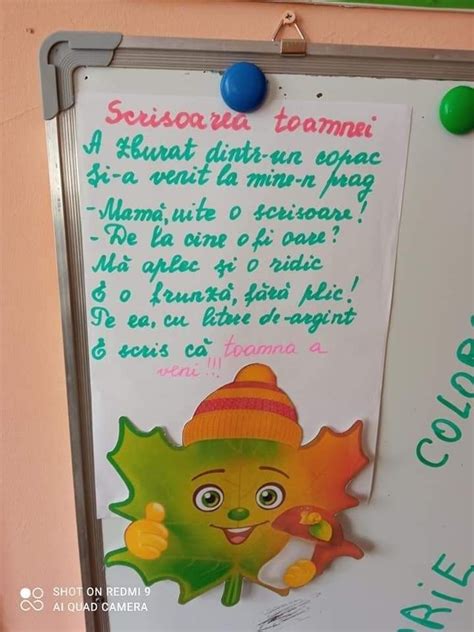 Scrisoarea toamnei
A zburat dintr-un copac
Și-a venit la mine-n prag
- Mamă, uite o scrisoare!
- De la cine o fi oare?
Mă aplec și o ridic
E o frunză, fără plic!
Pe ea, cu litere de-argint
E scris că toamna a
veni!!!
COLOR
RIE
SHOT ON REDMI 9
AI QUAD CAMERA